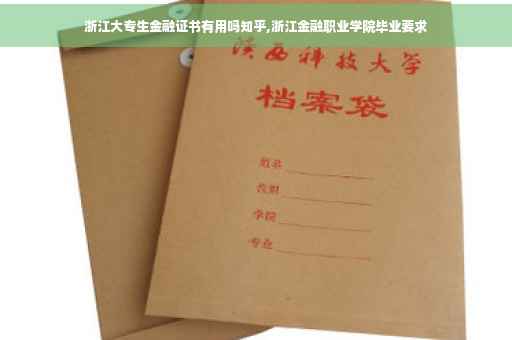 浙江大专生金融证书有用吗知乎,浙江金融职业学院毕业要求
陕西科技大学
档案袋
姓名
学院
专业